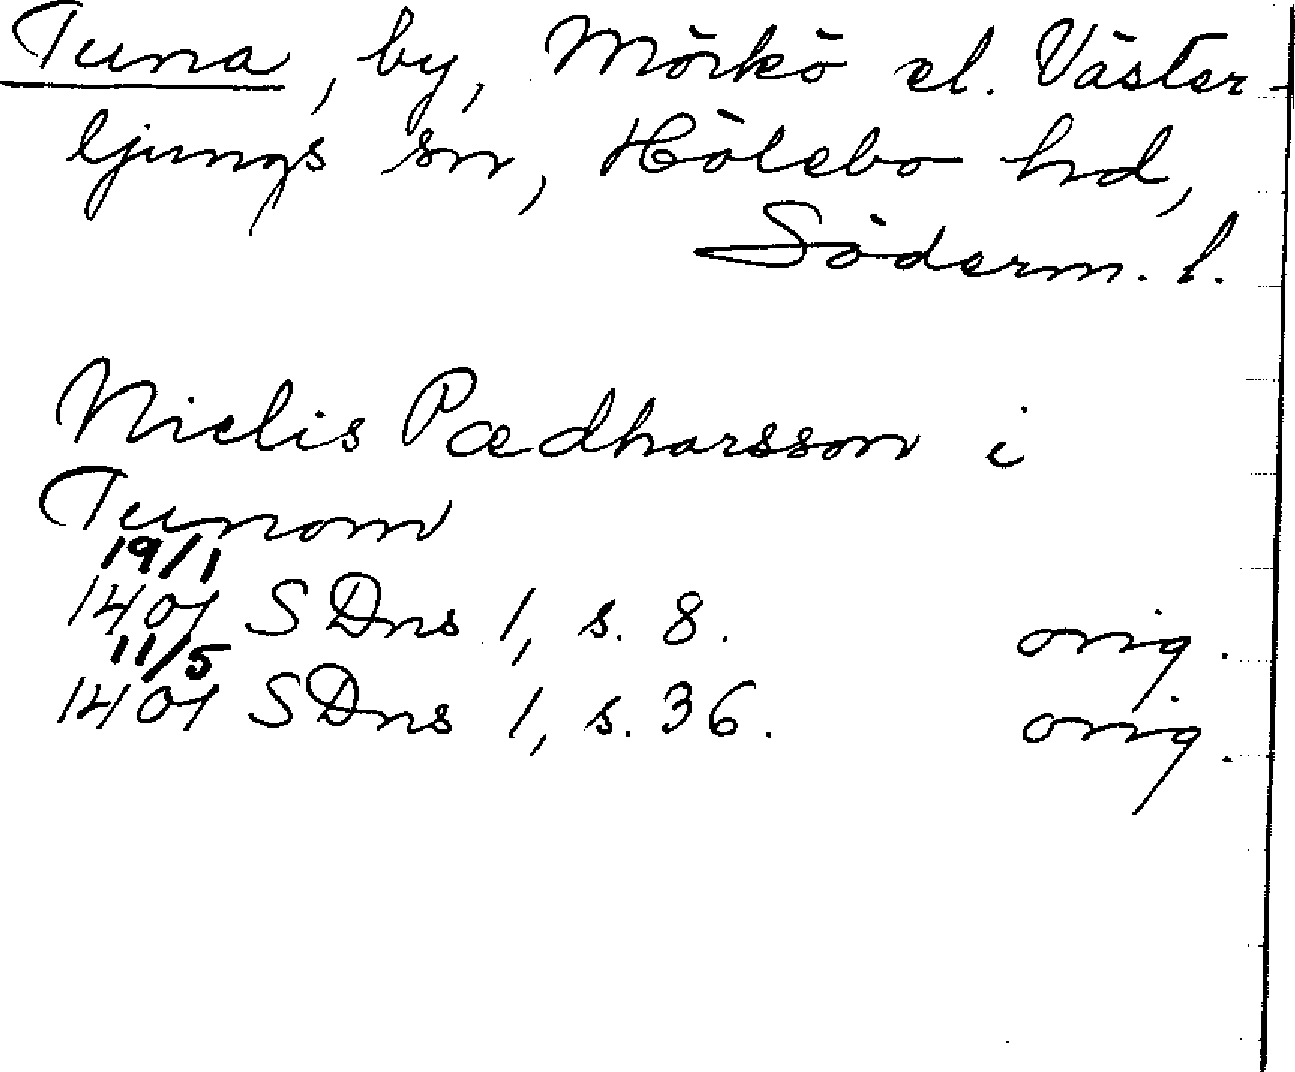 Tuna, by, Mörkö el. Väster-
ljungs sn, Hölebo hd,
Söderm. l.
Nielis Pædharsson i
Tunom
19/1
1401 SDns 1, s. 8. orig.
11/5
1401 SDns 1, s. 36. orig.